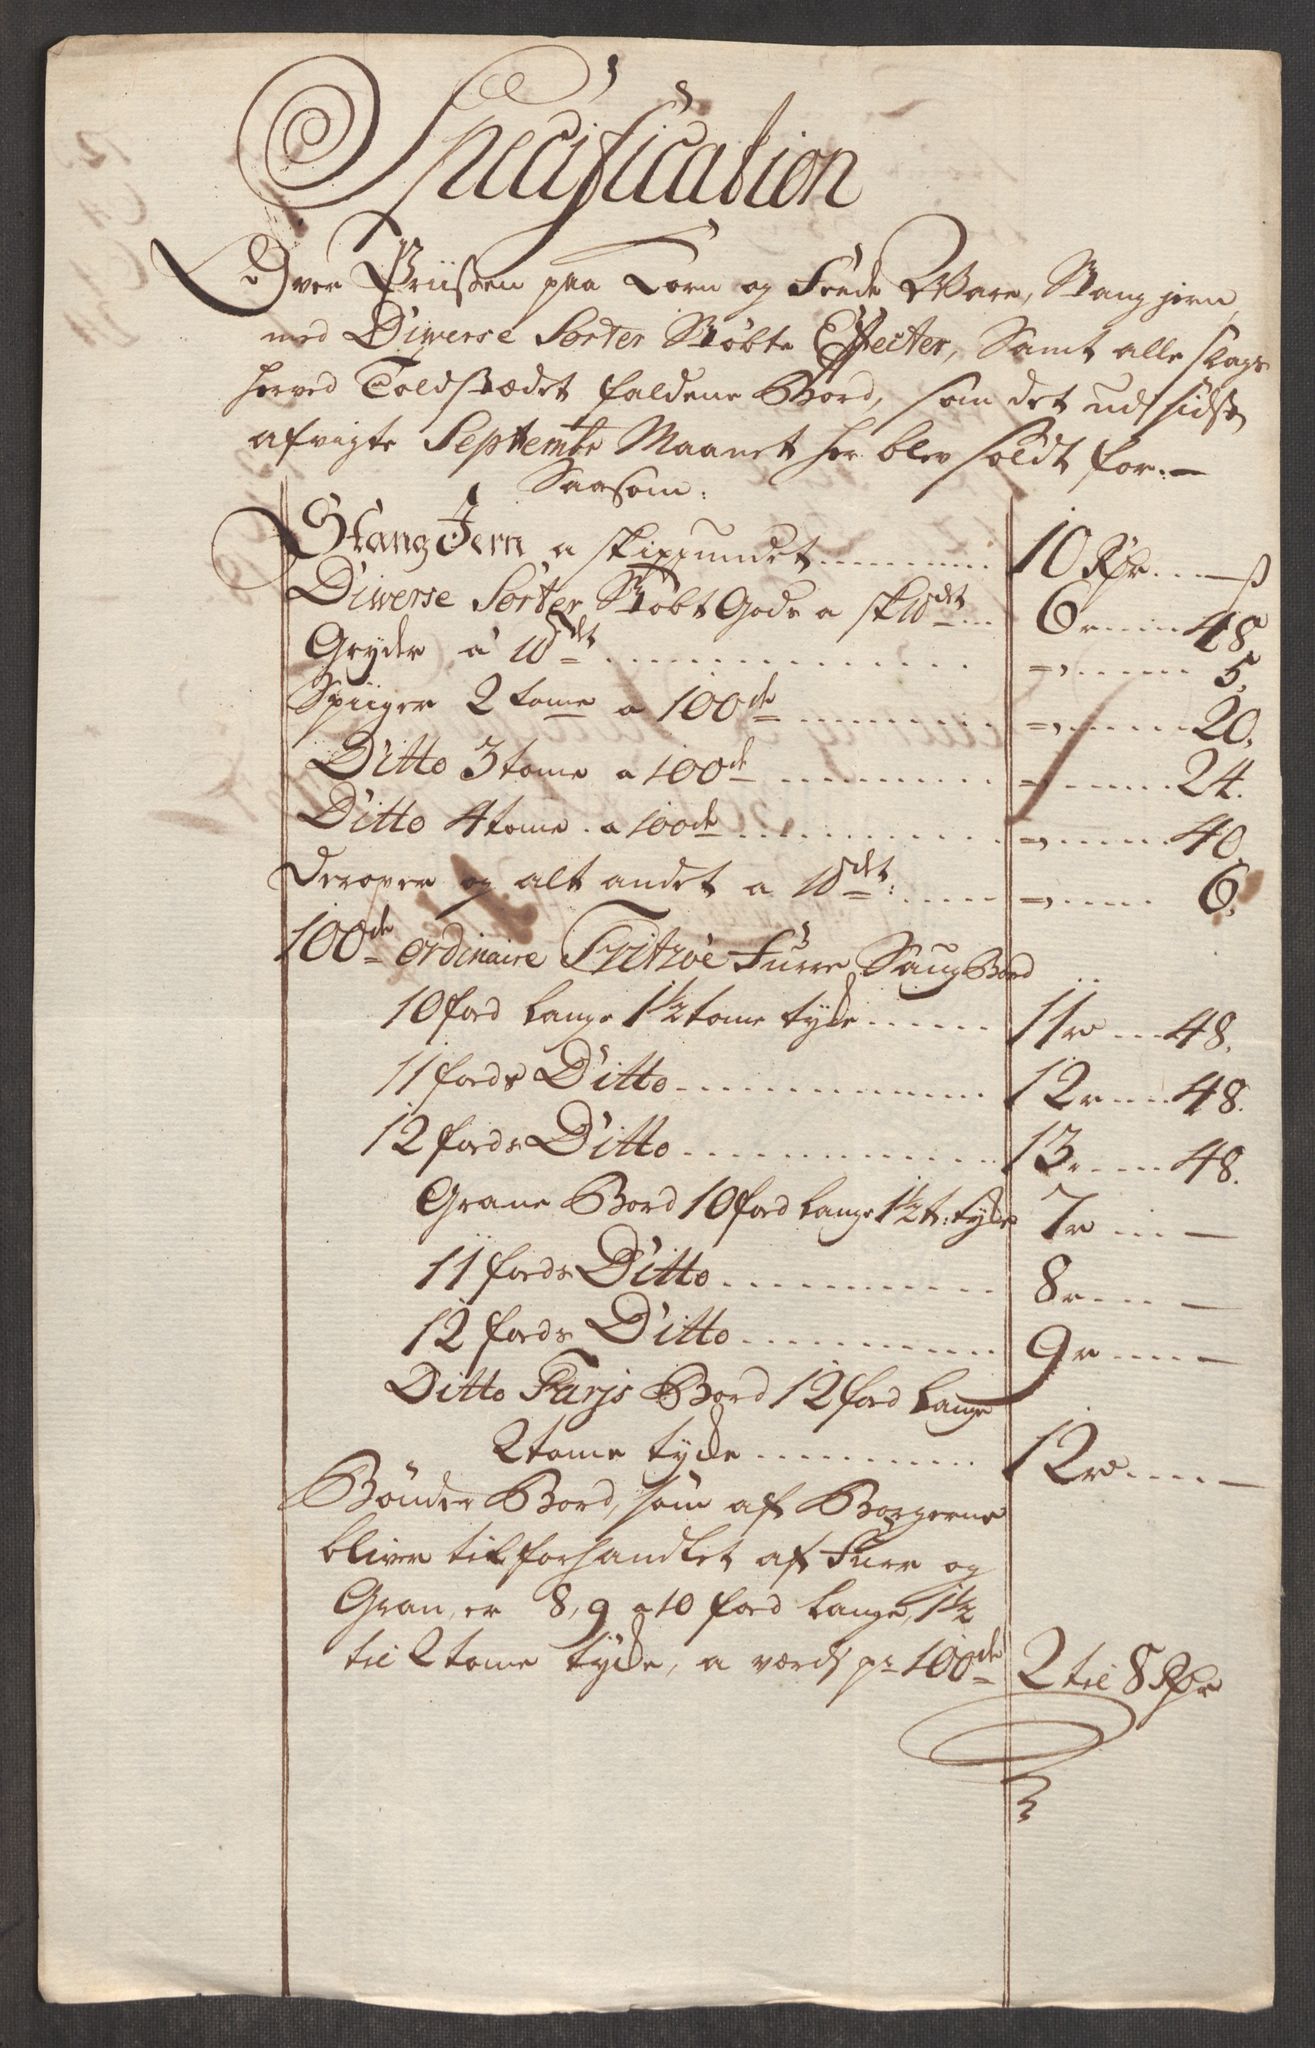 Specification
Over Priissen paa Korn og Fede Ware, Stang jern,
med Diwerse Sorter Støbte Effecter, Samt alle slags
herved Toldstædet faldene Bord, som det udj sidst
afvigte Septembr Maanet her blev soldt for:—
Saasom:
Stang Jern a skippundet 10 Rdr — ß
Diwerse Sorter Støbt Gods a sk℔det 6 r 48
Gryder a ℔det 5.
Spiiger 2 tome a 100de 20.
Ditto 3 tome a 100de 24.
Ditto 4 tome a 100de 40.
Derover og alt andet a ℔det: 6.
100de ordinaire Fritzøe Furre Saug Bord
10 ford lange 1½ tome tyde 11 r 48.
11 fords Ditto 12 r 48.
12 fords Ditto 13 r 48.
Grane Bord 10 ford lange 1½ t: tyde 7 r —
11 fords Ditto 8 r —
12 fords Ditto 9 r —
Ditto Farjs Bord 12 ford lange
2 tome tyde 12 r —
Bønder Bord, som af Borgerne
bliver tilforhandlet af Furr og
Gran, er 8, 9 a 10 ford lange, 1½
til 2 tome tyde, a værdj pr 100de 2 til 8 Rdr